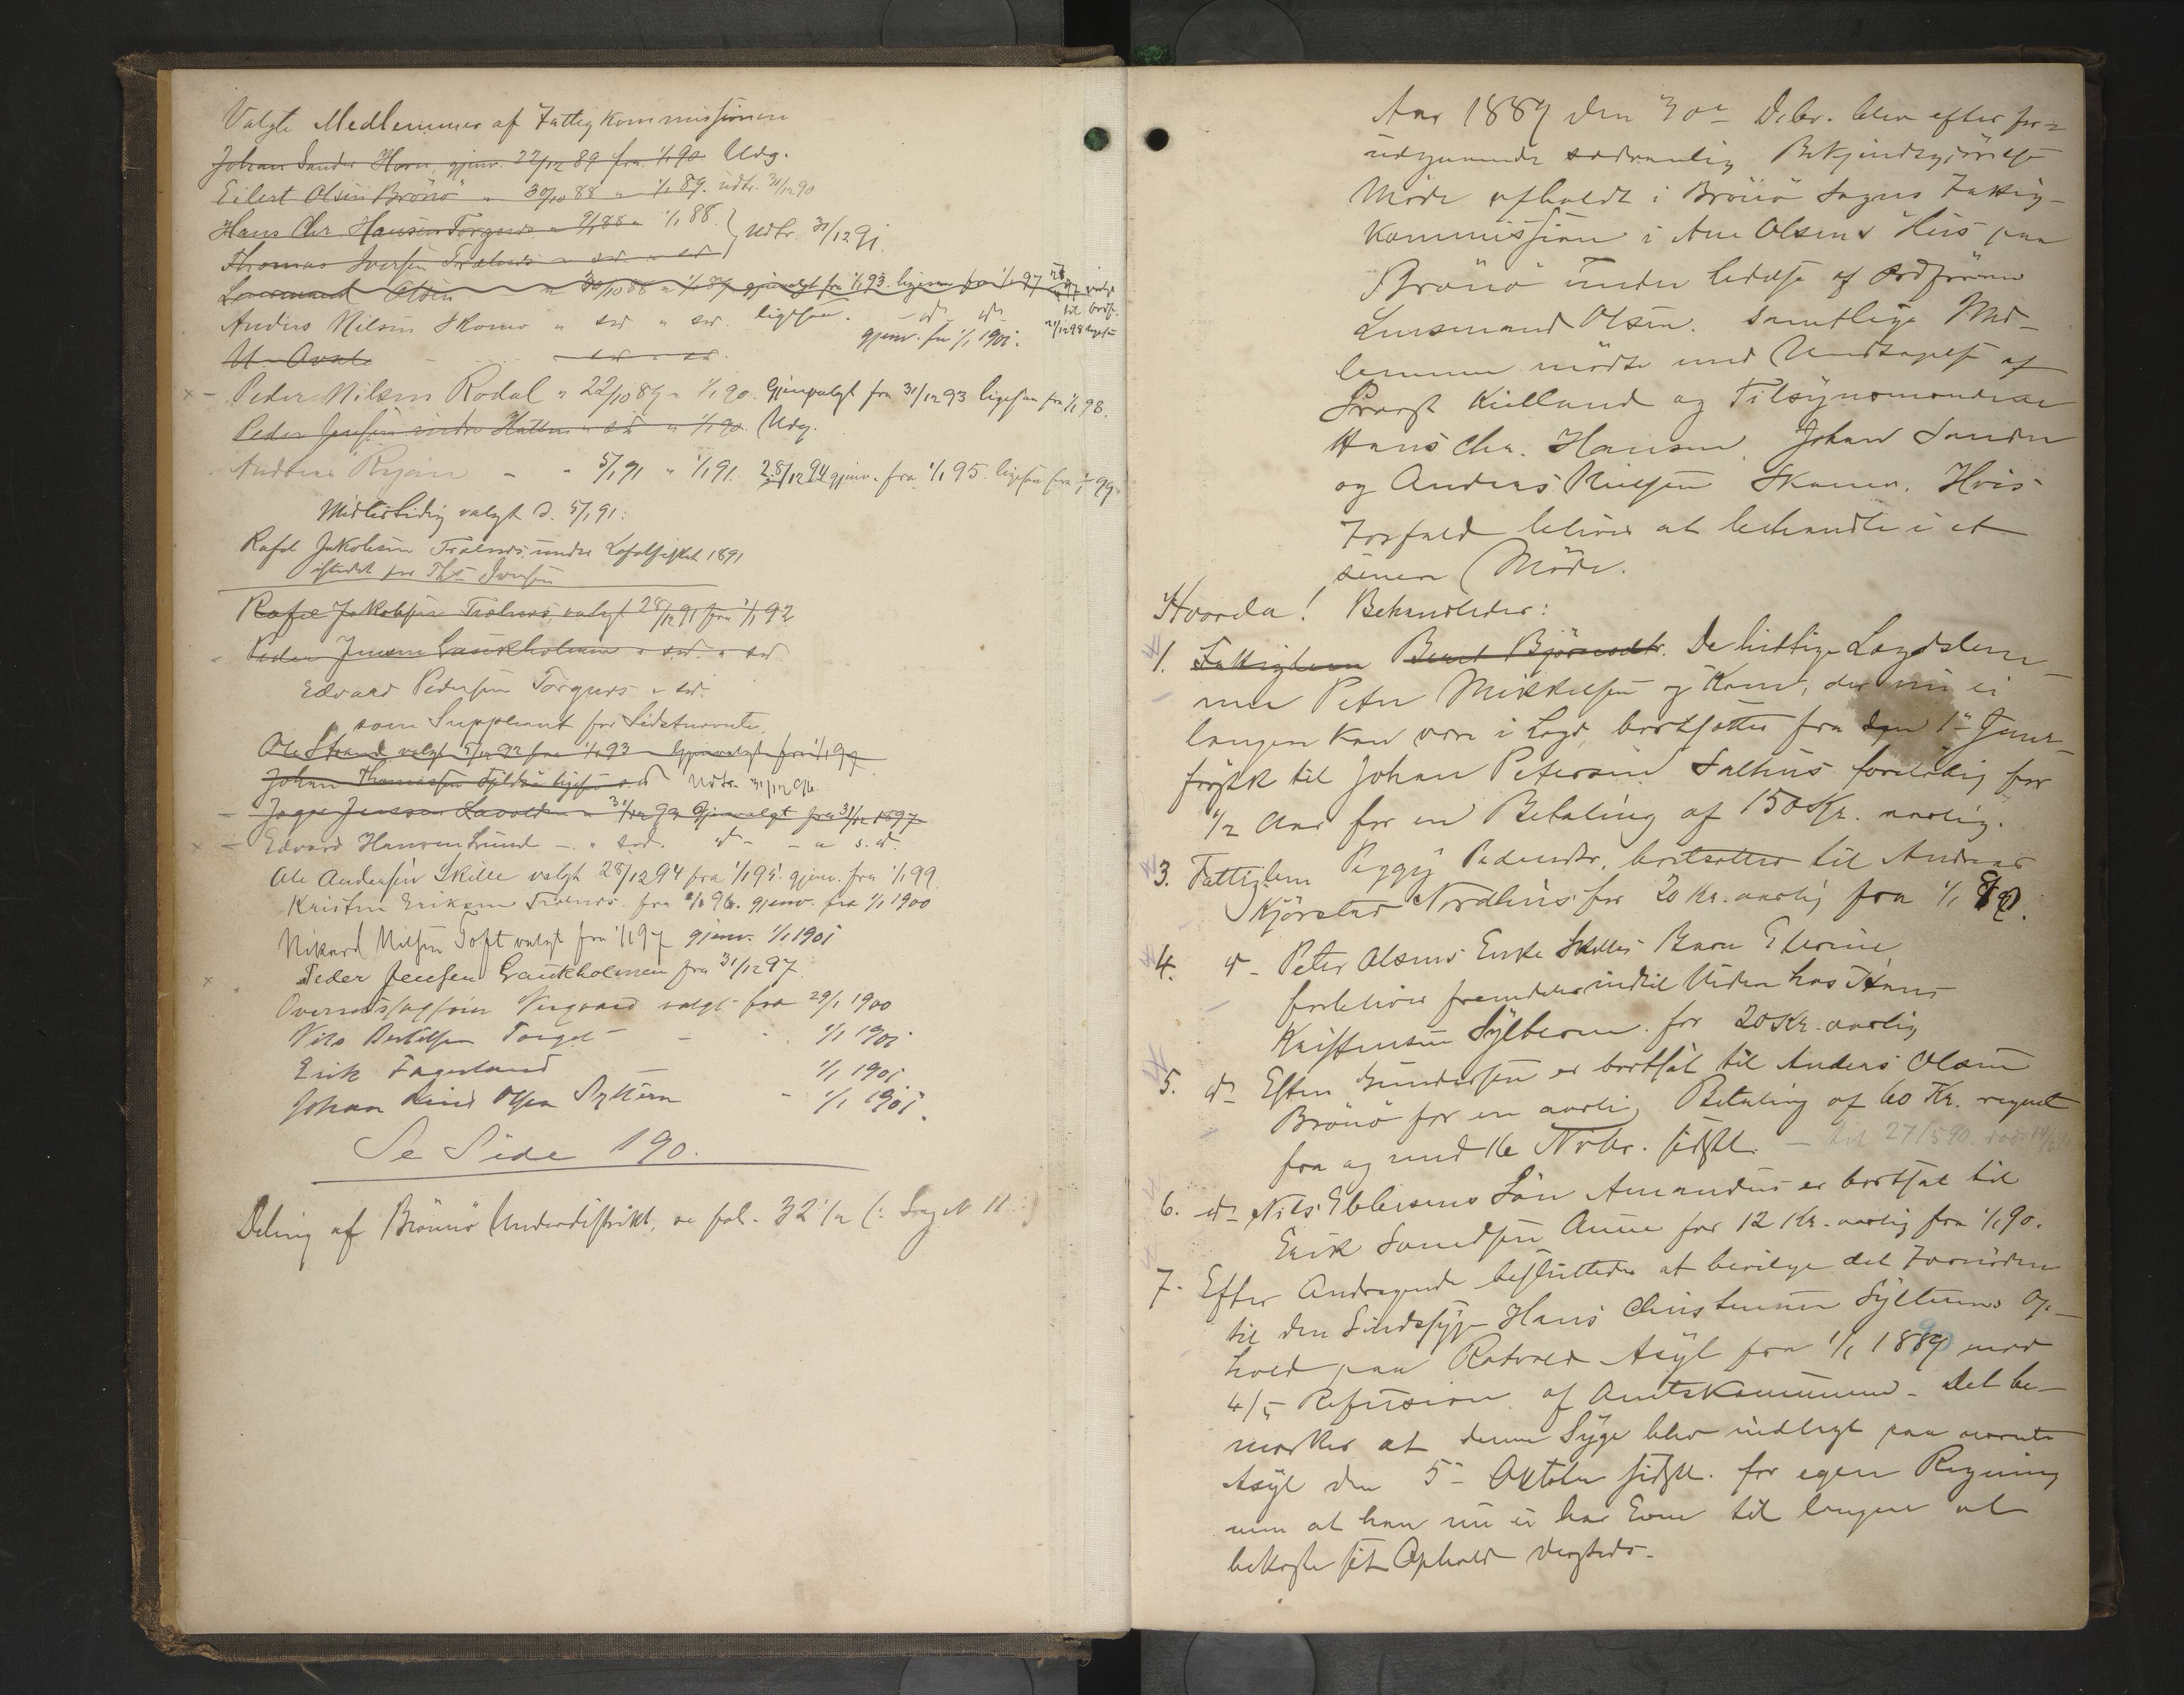 Valgte Medlemmer af Fattigkommissionen
Johan Sander Horn, gjenv. 22/12 89 fra 1/1 90. Udg.
Eilert Olsen Brönö " 30/10 88 " 1/1 89. udtr. 31/12 90
Hans Chr. Hansen Torgnes " 9/1 88 " 1/1 88. } Udtr. 31/12 91.
Thomas Iversen Trælnes " sd " sd
Lensmand Olsen " 30/10 88 " 1/1 89 gjenvalgt fra 1/1 93. ligesaa fra 1/1 97
Anders Nilsen Skomo " sd " sd. ligesaa. - do do
gjenv. fra 1/1 1901.
U. Avale - sd " sd.
Peder Nilsen Rodal " 22/10 89 " 1/1 90. Gjenvalgt fra 31/12 93 ligesaa fra 1/1 98.
Peder Jensen indre Hatten " sd " 1/1 90. Udg.
Andreas Rygan - " 5/1 91 " 1/1 91. 28/12 94 gjenv. fra 1/1 95. ligesaa fra 1/1 99
Midlertidig valgt d. 5/1 91:
Rafel Jakobsen Trælnes under Lofotfisket 1891
istedet for Ths Iversen
Rafel Jakobsen Trælnes, valgt 28/12 91 fra 1/1 92
Peder Jensen Gaukholmen " sd. " sd.
Edvard Pedersen Torgnes " sd.
som Suppleant for Sidstnævnte.
Ole Strand valgt 5/12 92 fra 1/1 93 - Gjenvalgt fra 1/1 97
Johan Thomassen Fjeldvik ligesaa sd Udtr. 31/12 96.
Edvard Hansen Lund - " sd. do - " s. d.
Ole Andersen Skille valgt 28/12 94 fra 1/1 95. gjenv. fra 1/1 99.
Kristen Eriksen Trælnes. fra 1/1 96. gjenv. fra 1/1 1900
Nikard Nilsen Toft valgt fra 1/1 97 gjenv. 1/1 1901
Peder Jensen Gaukholmen fra 31/12 97.
valgt fra 29/1 1900
Nils Bertilsen Torget - - 1/1 1901
Erik Fagerland 1/1 1901
Johan Olsen - 1/1 1901.
Se Side 190.
Deling af Brönnö Underdistrikt, se fol. 32 1/2 (: Sag N 11 :)
Aar 1889 den 30te Debr. blev efter for=
udgaaende sædvanlig Bekjendtgjörelse
Möde afholdt i Brönö Sogns Fattig-
kommission i Ane Olsens Hus paa
Brönö under Ledelse af Ordförer
Lensmand Olsen. Samtlige Med-
lemmer mödte med Undtagelse af
Provst Kielland og Tilsynsmændene
Hans Chr. Hansen, Johan Sander
og Anders Nielsen Skomo. Hvis
Forfald bliver at behandle i et
senere Möde.
Hvorda! Behandledes:
1. Fattiglem Berit Björnsdtr. De hidtige Lægdslem-
mer Peter Mikkelsen og Kone, der nu ei
længere kan være i Lægd, bortsættes fra den 1te Janu-
frögst til Johan Petersen Salhus foreløbig for
1/2 Aar for en Betaling af 150 Kr. aarlig.
3. Fattiglem Peggy Pedersdtr. bortsættes til Andreas
Kjörstad Nordhus for 20 Kr. aarlig fra 1/1 90.
4. do - Peter Olsens Enke Skilles Barn Eterine
forbliver fremdeles indtil Videre hos Hans
Kristensen Sylteren. for 20 Kr. aarlig
5. do Esten Gundersen er bortsat til Anders Olsen
Brönö for en aarlig Betaling af 60 Kr. regnet
fra og med 16 Novbr. sidstl. - til 27/5 90.
6. do Nils Ebbesens Sön Amandus er bortsat til
Erik Sandsen Aune for 12 Kr. aarlig fra 1/1 90.
7. Efter Andragende besluttedes at bevilge det Fornödne
til den Sindssyge Hans Christensen Sylterens Op-
hold paa Rotvold Asyl fra 1/1 1890 mod
4/5 Refusion af Amtskommunen. Det be-
mærkes at denne Syge blev indlagt paa nævnte
Asyl den 5te Oktober sidstl. for egen Regning
men at han nu ei har Evne til længere at
bekoste sit Ophold dersteds.